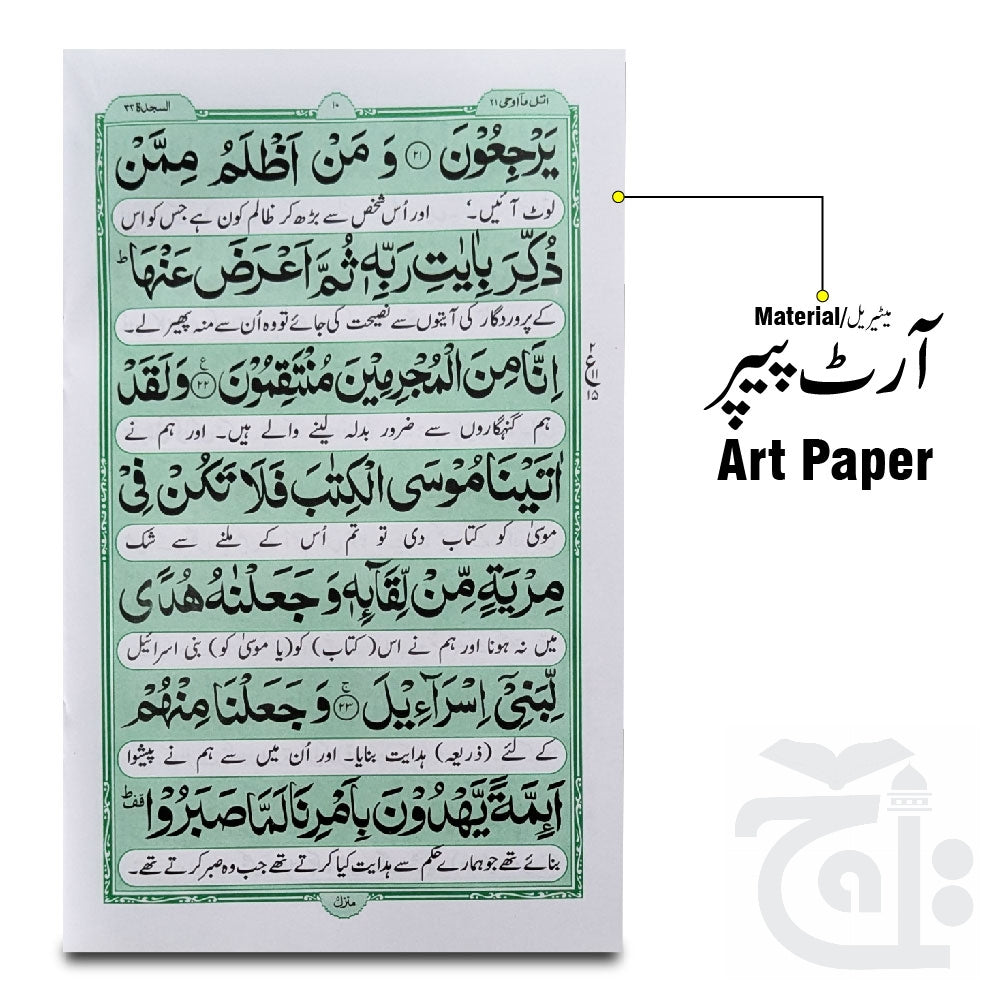 اتل ما اوحی ۲۱
۱۰
السجدة ۳۲
يَرْجِعُوْنَ ﴿۲۱﴾ وَ مَنْ اَظْلَمُ مِمَّنْ
لوٹ آئیں، اور اُس شخص سے بڑھ کر ظالم کون ہے جس کو اس
ذُكِّرَ بِاٰيٰتِ رَبِّهٖ ثُمَّ اَعْرَضَ عَنْهَا ؕ
کے پروردگار کی آیتوں سے نصیحت کی جائے تو وہ اُن سے منہ پھیر لے۔
اِنَّا مِنَ الْمُجْرِمِيْنَ مُنْتَقِمُوْنَ ﴿۲۲﴾ ع وَ لَقَدْ
ہم گنہگاروں سے ضرور بدلہ لینے والے ہیں۔ اور ہم نے
اٰتَيْنَا مُوْسَى الْكِتٰبَ فَلَا تَكُنْ فِيْ
موسیٰ کو کتاب دی تو تم اُس کے ملنے سے شک
مِرْيَةٍ مِّنْ لِّقَآئِهٖ وَ جَعَلْنٰهُ هُدًى
میں نہ ہونا اور ہم نے اس (کتاب) کو (یا موسیٰ کو) بنی اسرائیل
لِّبَنِيْۤ اِسْرَآءِيْلَ ﴿۲۳﴾ ج وَ جَعَلْنَا مِنْهُمْ
کے لئے (ذریعہ) ہدایت بنایا۔ اور اُن میں سے ہم نے پیشوا
اَئِمَّةً يَّهْدُوْنَ بِاَمْرِنَا لَمَّا صَبَرُوْا ؕ قف
بنائے تھے جو ہمارے حکم سے ہدایت کیا کرتے تھے جب وہ صبر کرتے تھے۔
۲
ع
۱۱
۱۵
Material/میٹیریل
آرٹ پیپر
Art Paper